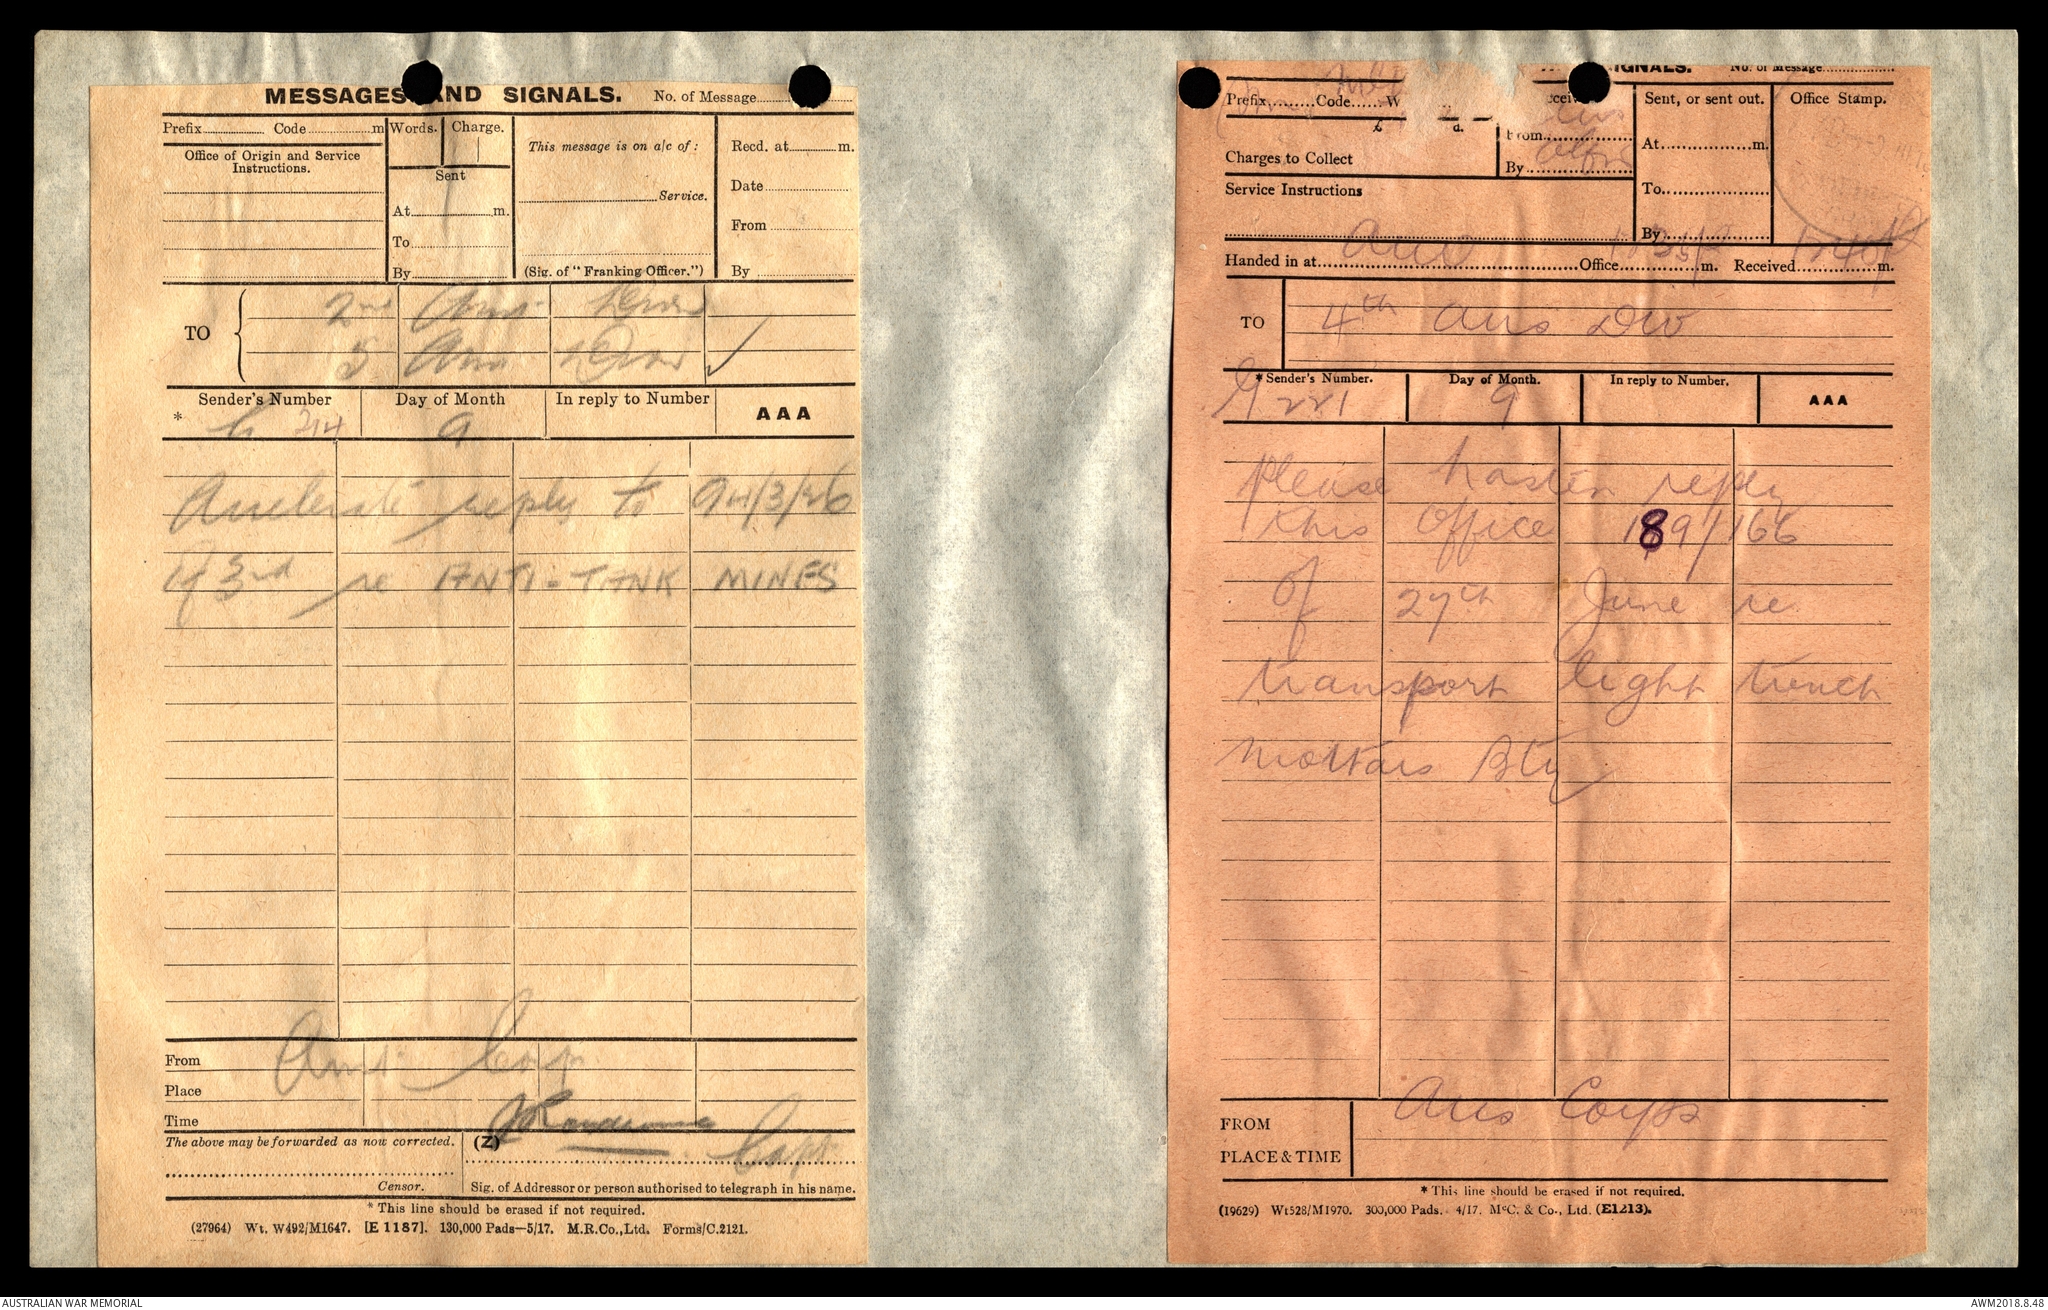 MESSAGES AND SIGNALS. No. of Message
Prefix Code m Words. Charge.
This message is on a/c of:
Recd. at m.
Office of Origin and Service
Instructions.
Sent
Date
At m.
Service.
To
From
By
(Sig. of "Franking Officer.")
By
TO
2nd Aus Div
5 Aus Div
Sender's Number Day of Month In reply to Number AAA
* G 214 9
Accelerate reply to
of 3rd re ANTI-TANK MINES
From Aus Corps
Place
Time
The above may be forwarded as now corrected. (Z)
Capt
Censor. Sig. of Addressor or person authorised to telegraph in his name.
* This line should be erased if not required.
(27964) Wt. W492/M1647. [E 1187]. 130,000 Pads—5/17. M.R.Co.,Ltd. Forms/C.2121.
SIGNALS. No. of Message
Prefix Code W
Sent, or sent out. Office Stamp.
£ d.
From
At m.
Charges to Collect
By
Service Instructions
To
By
Handed in at Aus Office m. Received m.
TO 4th Aus Div
* Sender's Number. Day of Month. In reply to Number. AAA
G 221 9
Please hasten reply
this office 189/166
of 27th June re
transport light trench
mortars Bty
FROM Aus Corps
PLACE & TIME
* This line should be erased if not required.
(19629) Wt528/M1970. 300,000 Pads. 4/17. McC. & Co., Ltd. (E1213).
AUSTRALIAN WAR MEMORIAL
AWM2018.8.48